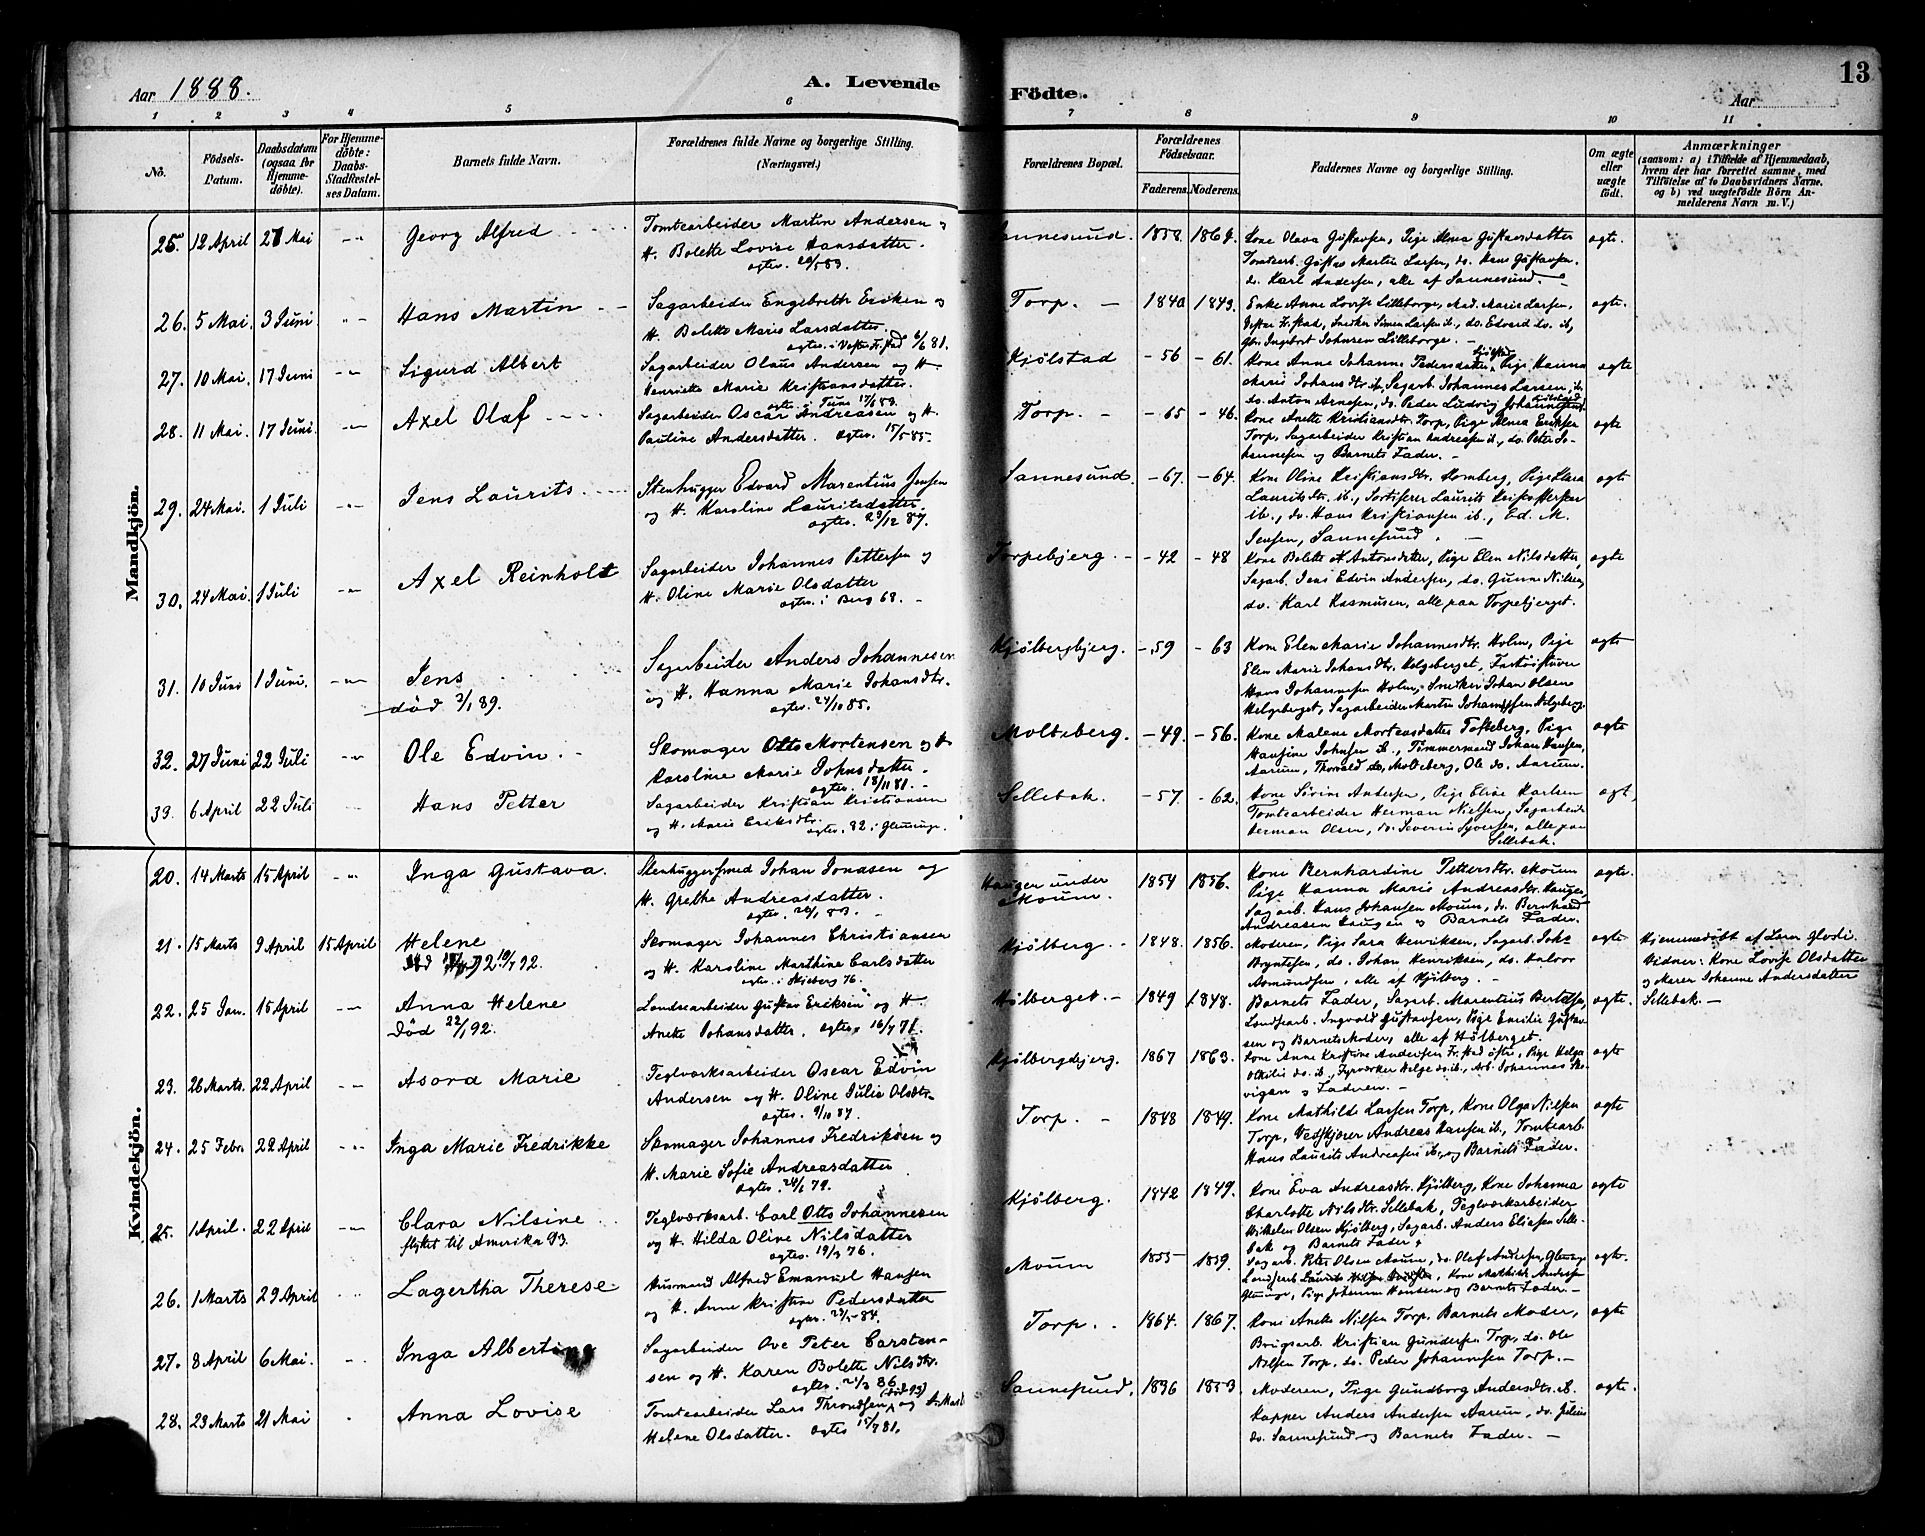 Aar 1888.
A. Levende Födte.
Aar
13
1 2 3 4 5 6 7 8 9 10 11
No.
Födsels-Datum.
Daabsdatum (ogsaa for Hjemmedöbte).
For Hjemmedöbte: Daabs-Stadfæstelses Datum.
Barnets fulde Navn.
Forældrenes fulde Navne og borgerlige Stilling. (Næringsvei.)
Forældrenes Bopæl.
Forældrenes Födselsaar.
Faderens. Moderens.
Faddernes Navne og borgerlig Stilling.
Om ægte eller uægte født.
Anmærkninger
(saasom: a) i Tilfælde af Hjemmedaab, hvem der har forrettet samme, med Tilføielse af to Daabsvidners Navne, og b) ved uægtefødte Börn Anmelderens Navn m. V.)
Mandkjön.
25. 12 April 27 Mai Georg Alfred
Tomtearbeider Martin Andersen og
H. Bolette Lovise Hansdatter.
Sannesund. 1858. 1864.
Kone Olava Gustavsen, Pige Alma Gustavsdatter
Tomtearb. Gustav Martin Larsen, do. Hans Gustavsen.
do. Karl Andersen, alle af Sannesund.
ægte.
26. 5 Mai. 3 Juni Hans Martin
Sagarbeider Engebreth Eriksen og
H. Bolette Marie Larsdatter.
Torp. 1840 1843.
Enke Anne Lovise Lilleborge, Mad. Marie Larsen,
Vestre Fr.stad, Snedker Simen Larsen ib., do. Edvard do. ib,
Gbr. Ingebort Johnsen Lilleborge.
ægte.
27. 10 Mai. 17 Juni Sigurd Albert
Sagarbeider Olaus Andersen og H.
Henriette Marie Kristiansdatter.
ægtev. i Tune 17/6 83.
Kjølstad -56 -61.
Kone Anne Johanne Pedersdatter, Pige Hanna
Marie Johansdtr. ib, Sagarb. Johannes Larsen, ib,
do. Anton Arnesen, do. Peder Ludvig Johannesen.
ægte
28. 11 Mai. 17 Juni. Axel Olaf
Sagarbeider Oscar Andreasen og H.
Pauline Andersdatter. ægtev. 15/5 85.
Torp. -65 -46.
Kone Anette Kristiansdtr. Torp, Pige Alma Eriksen
Torp, Sagarbeider Kristian Andreasen ib., do. Peter Jo-
hannesen og Barnets Fader.
ægte
29. 24 Mai. 1 Juli Jens Laurits
Stenhugger Edvard Marentius Jensen
og H. Karoline Lauritsdatter.
ægtev. 29/12 87.
Sannesund. -67. -64.
Kone Oline Kristiansdtr. Homberg, Pige Klara
Lauritsdtr. ib., Sortserer Laurits Kristoffersen
ib., do. Hans Kristiansen ib., Ed. M.
Jensen, Sannesund.
ægte
30. 24 Mai. 1 Juli Axel Reinholdt
Sagarbeider Johannes Pettersen og
H. Oline Marie Olsdatter
ægtev. i Berg 68.
Torpebjerg. -42 -48
Kone Bolette M. Antonsdatter, Pige Elen Nilsdatter,
Sagarb. Jens Edvin Andersen, do. Gunne Nilsen,
do. Karl Rasmusen, alle paa Torpebjerget.
ægte
31. 10 Juni 1 Juni. Jens
død 3/1 89.
Sagarbeider Anders Johannesen
og H. Hanna Marie Johansdtr.
ægtev. 24/10 85.
Kjølbergbjerg. -59 -63
Kone Elen Marie Johannesdtr. Holm, Pige
Elen Marie Johansdtr. Helgeberget,
Hans Johannesen Holm, Snedker Johan Olsen
Helgeberget, Sagarbeider Martin Johannesen Helgeberg.
ægte
32. 27 Juni 22 Juli Ole Edvin.
Skomager Otto Mortensen og H.
Karoline Marie Johnsdatter.
ægtev. 18/11 81.
Molteberg. -49. -56.
Kone Malene Mortensdatter Tofteberg, Pige
Hansine Johnsen ib., Timmermand Johan Hansen,
Aarum, Thorvald do, Molteberg, Ole do. Aarum.
ægte
33. 6 April 22 Juli Hans Petter
Sagarbeider Kristian Kristiansen
og H. Marie Eriksdtr.
ægtev. 82 i Glemminge.
Sellebak. -57. -62.
Kone Sørine Andersen, Pige Elise Karlsen
Tomtearbeider Herman Nielsen, Sagarbeider
Herman Olsen, do. Severin Syversen, alle paa
Sellebak.
ægt.
Kvindekjön.
20. 14 Marts 15 April Inga Gustava.
Stenhuggersmed Johan Jonasen og
H. Grethe Andreasdatter.
Hauger under Moum. 1854 1856.
Kone Bernhardine Pettersdtr. Moum
Pige Hanna Marie Andreasdtr. Hauger,
Sagarb. Hans Johansen Moum, do. Bernhard
Andreasen Haugen og Barnets Fader.
ægte.
21. 15 Marts 9 April 15 April Helene
19/7 92.
Skomager Johannes Christiansen
og H. Karoline Marthine Carlsdatter
ægtev. i Skjeberg 76.
Kjølberg. 1848. 1856.
Moderen, Pige Sara Henriksen, Sagarb. Johs
Bryntesen, do. Johan Henriksen, do. Halvor
Asmundsen, alle af Kjølberg.
ægte
Hjemmedøbt af Lærer Glodi.
Vidner: Kone Lovise Olsdatter
og Maren Johanne Andersdatter
Sellebak.
22. 25 Jan. 15 April Anna Helene
Død 22/1 92.
Landearbeider Gustav Eriksen og H.
Anette Johansdatter. ægtev. 16/7 71.
Hølberget. 1849 1848.
Barnets Fader, Sagarb. Marentius Bertelsen,
Landsearb. Ingvald Gustavsen, Pige Emilie Gustav-
sen og Barnets Moder, alle af Hølberget.
ægte.
23. 26 Marts. 22 April Asora Marie
Teglværksarbeider Oscar Edvin
Andersen og H. Oline Julie Olsdtr.
ægtev. 9/10 87.
Kjølbergbjerg. 1867 1863.
Kone Anne Kristine Andersen Fr.stad østre, Pige Helga
Othilie do. ib., Fyrvæker Helge do. ib., Arb. Johannes Sko-
vigen og Faderen.
ægte
24. 25 Febr. 22 April Inga Marie Fredrikke
Skomager Johannes Fredriksen og
H. Marie Sofie Andreasdatter
Torp. 1848 1849.
Kone Mathilde Larsen Torp, Kone Olga Nilsen
Torp, Vedskjærer Andreas Hansen ib., Tomtearb.
Hans Laurits Andreasen ib, og Barnets Fader.
ægte
25. 1 April. 22 April Clara Nilsine
flyttet til Amerika 93.
Teglværksarb. Carl Otto Johannesen
og H. Hilda Oline Nilsdatter
Kjølberg. 1842 1849.
Kone Eva Andreasdtr. Kjølberg, Kone Johanna
Charlotte Nilsdtr. Sellebak, Teglværkarbeider
Vilhelm Olsen Kjølberg, Sagarb. Anders Eliasen Selle-
bak og Barnets Fader.
ægte
26. 1 Marts 29 April Lagertha Therese.
Husmand Alfred Emanuel Hansen
og H. Anne Kristine Pedersdatter
Moum 1855 1859.
Sagarb. Peter Olsen Moum, do. Olaf Andersen, Glemmige
Kone Mathilde Andersen
Glemmige, Pige Johanne Hansen og Barnets Fader.
ægte.
27. 8 April 6 Mai. Inga Albertine
Sagarbeider Ove Peter Carsten-
sen og H. Karen Bolette Nilsdtr.
Torp. 1864. 1867.
Kone Anette Nilsen Torp, Barnets Moder,
Brugsarb. Kristian Gundersen Torp, do. Ole
Nilsen Torp, do. Peder Johannesen Torp.
ægte
28. 23 Marts 21 Mai Anna Lovise
Tomtearbeider Lars Throndsen, (død 93) og H. Marie
Helene Olsdatter. ægtev. 17/7 81.
Sannesund. 1836 1853.
Moderen, Pige Gundborg Andersdtr. ib.
Kapper Anders Andersen Aarum, do. Julius
do. Sannesund og Barnets Fader.
ægte.